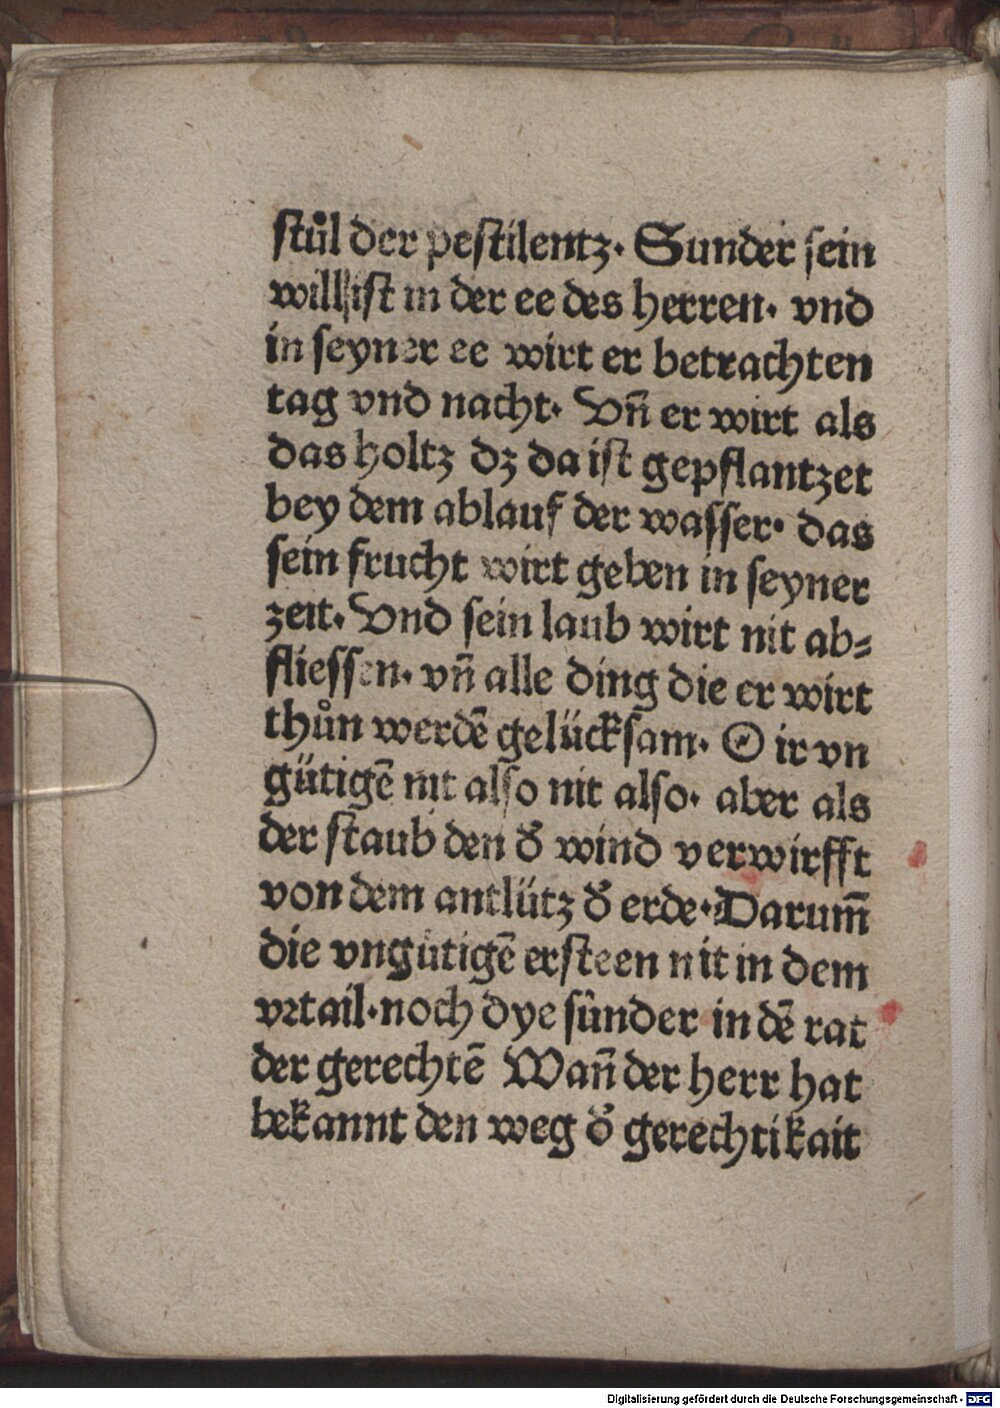 stůl der pestilentz. Sunder sein
will ist in der ee des herren. vnd
in seyner ee wirt er betrachten
tag vnd nacht. Vn̄ er wirt als
das holtz dz da ist gepflantzet
bey dem ablauf der wasser. das
sein frucht wirt geben in seyner
zeit. Vnd sein laub wirt nit ab⸗
fliessen. vn̄ alle ding die er wirt
thůn werdē gelücksam. O ir vn
gütigē nit also nit also. aber als
der staub den d̕ wind verwirfft
von dem antlütz d̕ erde. Darum̄
die vngütigē ersteen nit in dem
vrtail. noch dye sünder in dē rat
der gerechtē Wan̄ der herr hat
bekannt den weg d̕ gerechtikait
Digitalisierung gefördert durch die Deutsche Forschungsgemeinschaft - DFG